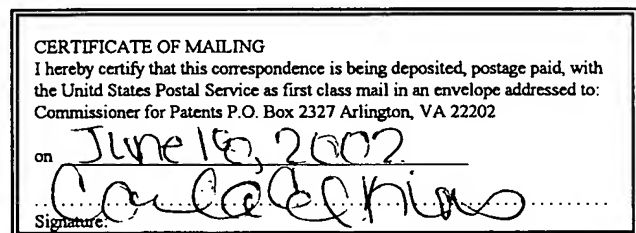 CERTIFICATE OF MAILING
I hereby certify that this correspondence is being deposited, postage paid, with
the Unitd States Postal Service as first class mail in an envelope addressed to:
Commissioner for Patents P.O. Box 2327 Arlington, VA 22202
on June 18, 2002
Signature: